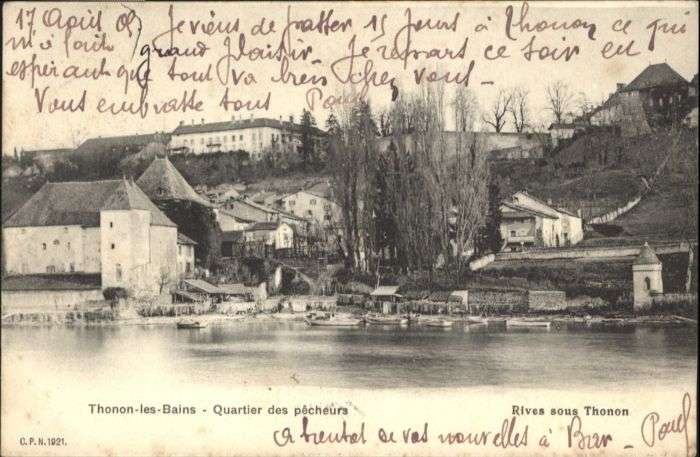 17 Août 05 Je viens de passer 15 jours à Thonon ce qui
m'a fait grand plaisir. Je repars ce soir en
espérant que tout va bien chez vous.
Vous embrasse tous
Thonon-les-Bains - Quartier des pêcheurs
Rives sous Thonon
C.P.N. 1921.
A bientôt de vos nouvelles à